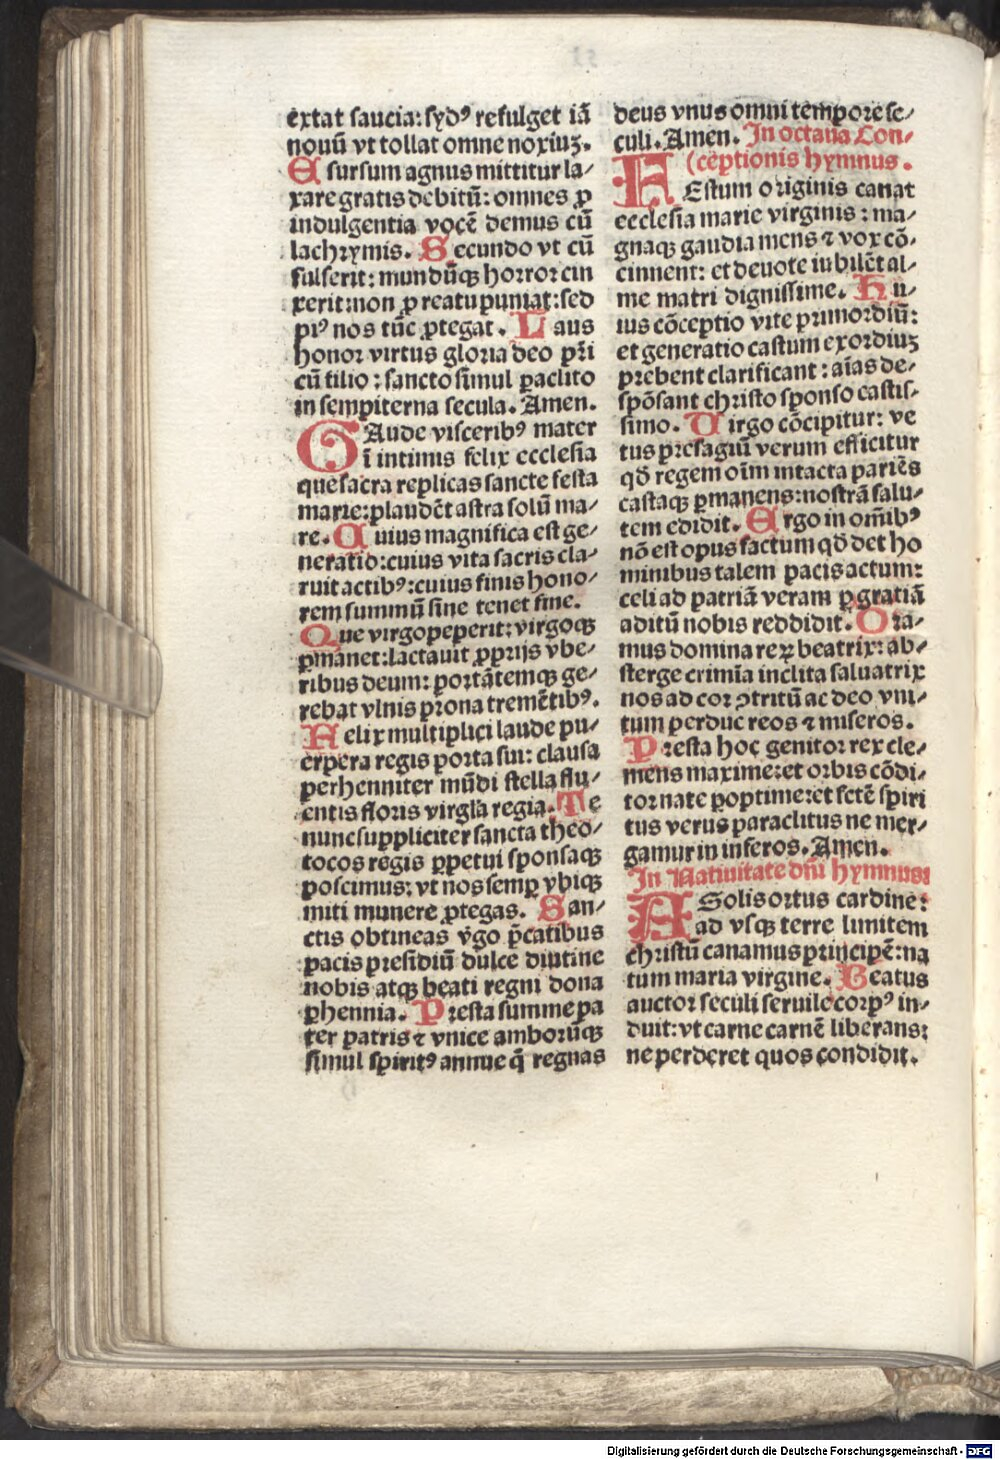 extat saucia: syd⁹ refulget iā
nouū vt tollat omne noxiuꝫ.
E sursum agnus mittitur la⸗
xare gratis debitū: omnes ꝓ
indulgentia vocē demus cū
lachrymis. Secundo vt cū
fulserit: mundūqꝫ horror cin
xerit: non ꝓ reatu puniat: sed
pi⁹ nos tūc ꝓtegat. Laus
honor virtus gloria deo pr̄i
cū filio: sancto simul ꝑaclito
in sempiterna secula. Amen.
GAude visceribꝰ mater
ī intimis felix ecclesia
que sacra replicas sancte festa
marie: plaudēt astra solū ma⸗
re. Cuius magnifica est ge⸗
neratio: cuius vita sacris cla⸗
ruit actibꝰ: cuius finis hono⸗
rem summū sine tenet fine.
Que virgo peperit: virgoqꝫ
ꝑmanet: lactauit ꝓprijs vbe⸗
ribus deum: portātemqꝫ ge⸗
rebat vlnis prona tremētibꝰ.
Felix multiplici laude pu⸗
erpera regis porta sui: clausa
perhenniter mūdi stella flu⸗
entis floris virgla regia. Te
nunc suppliciter sancta theo⸗
tocos regis ꝑpetui sponsaqꝫ
poscimus: vt nos semꝑ vbiqꝫ
miti munere ꝓtegas. San⸗
ctis obtineas v̄go p̄catibus
pacis presidiū dulce diutine
nobis atqꝫ beati regni dona
phennia. Presta summe pa
ter patris ⁊ vnice amborūqꝫ
simul spirit⁹ annue q̄ regnas
deus vnus omni tempore se⸗
culi. Amen. In octaua Con⸗
(ceptionis hymnus.
FEstum originis canat
ecclesia marie virginis: ma⸗
gnaqꝫ gaudia mens ⁊ vox cō⸗
cinnent: et deuote iubilēt al⸗
me matri dignissime. Hu⸗
ius cōceptio vite primordiū:
et generatio castum exordiuꝫ
prebent clarificant: aīas de⸗
spōsant christo sponso castis⸗
simo. Virgo cōcipitur: ve
tus presagiū verum efficitur
qd̄ regem oīm intacta pariēs
castaqꝫ ꝑmanens: nostrā salu⸗
tem edidit. Ergo in om̄ibꝰ
nō est opus factum qd̄ det ho
minibus talem pacis actum:
celi ad patriā veram ꝑ gratiā
aditū nobis reddidit. Ora⸗
mus domina reꝝ beatrix: ab⸗
sterge crimīa inclita saluatrix
nos ad cor ꝯtritū ac deo vni⸗
tum perduc reos ⁊ miseros.
Presta hoc genitor rex cle⸗
mens maxime: et orbis cōdi⸗
tor nate ꝑoptime: et sctē spiri
tus verus paraclitus ne mer⸗
gamur in inferos. Amen.
In Natiuitate dn̄i hymnus:
A Solis ortus cardine:
ad vsqꝫ terre limitem
christū canamus principē: na
tum maria virgine. Beatus
auctor seculi seruile corp⁹ in⸗
duit: vt carne carnē liberans:
ne perderet quos condidit.
Digitalisierung gefördert durch die Deutsche Forschungsgemeinschaft - DFG